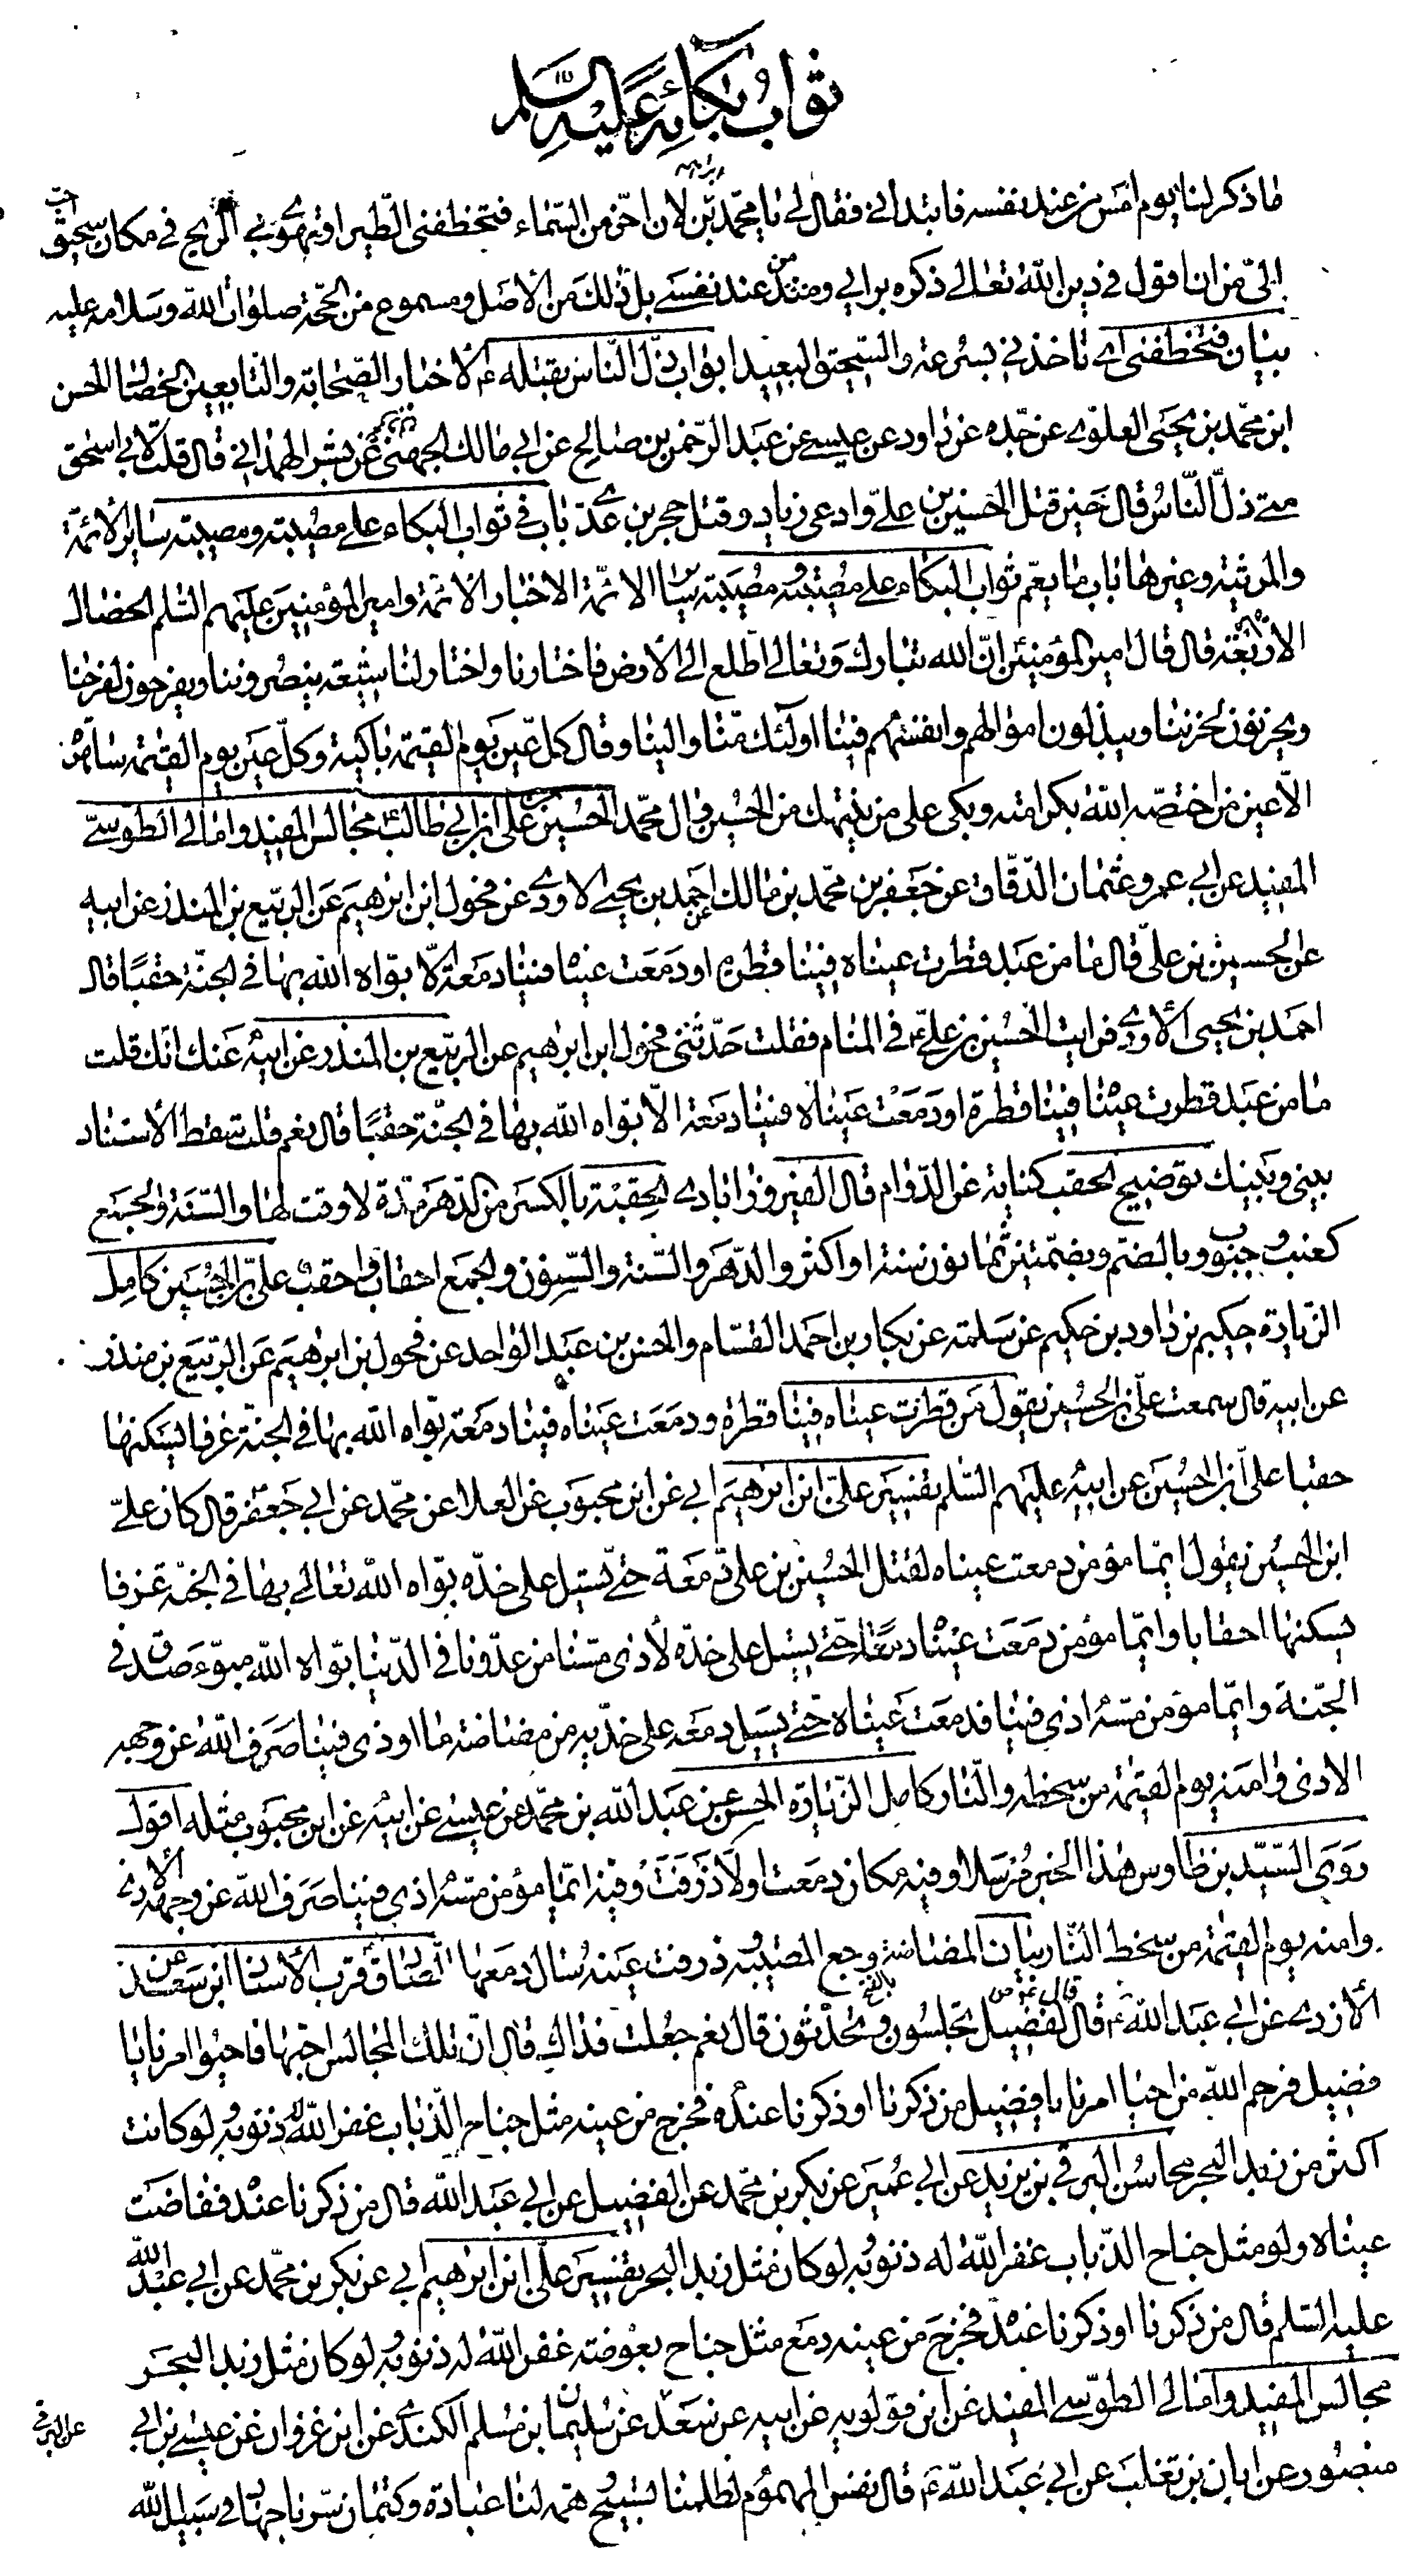 ثواب بكائه عليه السلم
ما ذكر لنا يوم امس من عند نفسه فابتدانى فقال لى يا محمد بن ابراهيم لان اخر من السماء فتخطفنى الطير او تهوى بى الريح فى مكان سحيق احب
الى من ان اقول فى دين الله تعالى ذكره برايى ومن عند نفسى بل ذلك من الاصل ومسموع من الحجة صلوات الله وسلامه عليه
بيان فتخطفنى اى تاخذنى بسرعة والسحيق البعيد ابواب ذل الناس بقتله ع الاخبار الصحابة والتابعين الخصال الحسن
ابن محمد بن يحيى العلوى عن جده عن داود عن عيسى عن عبد الرحمن بن صالح عن ابى مالك الجهنى عن عمر بن بشر الهمدانى قال قلت لابى اسحق
متى ذل الناس قال حين قتل الحسين بن على وادعى زياد وقتل حجر بن عدى باب فى ثواب البكاء على مصيبته ومصيبة ساير الائمة
والمرثية وغيرها باب ما يعم ثواب البكاء على مصيبته ومصيبة ساير الائمة الاخبار الائمة وامير المؤمنين عليهم السلم الخصال
الاربعمائة قال قال امير المؤمنين ان الله تبارك وتعالى اطلع الى الارض فاختارنا واختار لنا شيعة ينصروننا ويفرحون لفرحنا
ويحزنون لحزننا ويبذلون اموالهم وانفسهم فينا اولئك منا والينا وقال كل عين يوم القيمة باكية وكل عين يوم القيمة ساهرة
الا عين من اختصه الله بكرامته وبكى على من ينتهك من الحسين وال محمد الحسين بن على ابن ابى طالب ع مجالس المفيد وامالى الطوسى
المفيد عن ابى عمرو عثمان الدقاق عن جعفر بن محمد بن مالك عن احمد بن يحيى الاودى عن مخول ابن ابرهيم عن الربيع بن المنذر عن ابيه
عن الحسين بن على قال ما من عبد قطرت عيناه فينا قطرة او دمعت عيناه فينا دمعة الا بواه الله بها فى الجنة حقبا قال
احمد بن يحيى الاودى فرايت الحسين بن على ع فى المنام فقلت حدثنى مخول ابن ابرهيم عن الربيع بن المنذر عن ابيه عنك انك قلت
ما من عبد قطرت عيناه فينا قطرة او دمعت عيناه فينا دمعة الا بواه الله بها فى الجنة حقبا قال نعم قلت سقط الاسناد
بينى وبينك توضيح الحقب كناية عن الدوام قال الفيروزابادى الحقبة بالكسر من الدهر مدة لا وقت لها والسنة والجمع
كعنب وحبوب وبالضم وبضمتين ثمانون سنة او اكثر والدهر والسنة والسنون والجمع احقاب واحقب على بن الحسين كامل
الزيارة حكيم بن داود بن حكيم عن سلمة عن بكار بن احمد القسام والحسن بن عبد الواحد عن مخول بن ابرهيم عن الربيع بن منذر
عن ابيه قال سمعت على بن الحسين يقول من قطرت عيناه فينا قطرة ودمعت عيناه فينا دمعة بواه الله بها فى الجنة غرفا يسكنها
حقبا على بن الحسين عن ابيه عليهم السلم تفسير على ابن ابرهيم ابى عن ابن محبوب عن العلا عن محمد عن ابى جعفر قال كان على
ابن الحسين يقول ايما مؤمن دمعت عيناه لقتل الحسين بن على دمعة حتى تسيل على خده بواه الله تعالى بها فى الجنة غرفا
يسكنها احقابا وايما مؤمن دمعت عيناه دمعا حتى يسيل على خده لاذى مسنا من عدونا فى الدنيا بواه الله مبوء صدق فى
الجنة وايما مؤمن مسه اذى فينا فدمعت عيناه حتى يسيل دمعه على خديه من مضاضة ما اوذى فينا صرف الله عن وجهه
الاذى وامنه يوم القيمة من سخطه والنار كامل الزيارة الحسن بن عبد الله بن محمد عن عيسى عن ابيه عن ابن محبوب مثله اقول
روى السيد بن طاوس هذا الخبر مرسلا وفيه مكان دمعت اولا ذرفت وفيه ايما مؤمن مسه اذى فينا صرف الله عن وجهه الاذى
وامنه يوم القيمة من سخط النار بيان المضاضة وجع المصيبة وذرفت عينه سال دمعها الصادق ع قرب الاسناد ابن سعد عن
الازدى عن ابى عبد الله ع قال قال لفضيل تجلسون وتحدثون قال نعم جعلت فداك قال ان تلك المجالس احبها فاحيوا امرنا يا
فضيل فرحم الله من احيا امرنا يا فضيل من ذكرنا او ذكرنا عنده فخرج من عينه مثل جناح الذباب غفر الله له ذنوبه لو كانت
اكثر من زبد البحر محاسن البرقى بن يزيد عن ابى عمير عن بكر بن محمد عن الفضيل عن ابى عبد الله قال من ذكرنا عنده ففاضت
عيناه ولو مثل جناح الذباب غفر الله له ذنوبه لو كان مثل زبد البحر تفسير على ابن ابرهيم ابى عن بكر بن محمد عن ابى عبد الله
عليه السلم قال من ذكرنا او ذكرنا عنده فخرج من عينه دمع مثل جناح بعوضة غفر الله له ذنوبه لو كان مثل زبد البحر
مجالس المفيد وامالى الطوسى المفيد عن ابن قولويه عن ابيه عن سعد عن البرقى عن سليمان ابن مسلم الكندى عن ابن غزوان عن عيسى بن ابى
منصور عن ابان بن تغلب عن ابى عبد الله ع قال نفس المهموم لظلمنا تسبيح وهمه لنا عبادة وكتمان سرنا جهاد فى سبيل الله